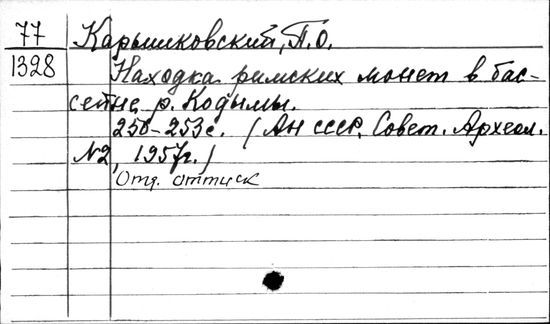 77 Карышковский, П.О.
1328 Находка римских монет в бас-
сейне р. Кодымы.
250-253 с. (АН СССР, Совет. Археол.
№2, 1957г.)
Отд. оттиск